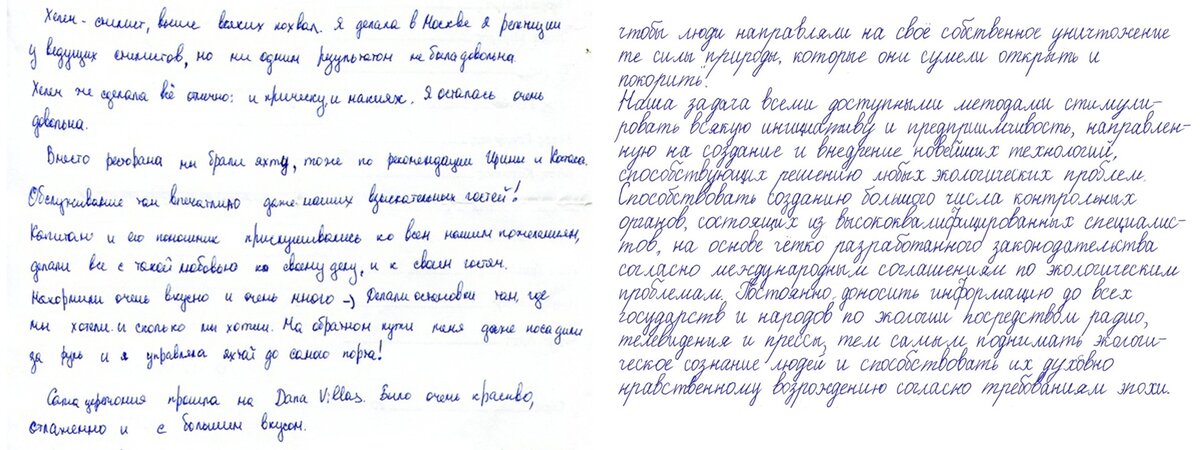 Хелен - стилист, выше всяких похвал. Я делала в Москве 2 репетиции
у ведущих стилистов, но ни одним результатом не была довольна.
Хелен же сделала всё отлично: и прическу, и макияж. Я осталась очень
довольна.
Вместо ресторана мы брали яхту, тоже по рекомендации Ирины и Костаса.
Обслуживание там впечатлило даже наших взыскательных гостей!
Капитан и его помошник прислушивались ко всем нашим пожеланиям,
делали все с такой любовью ко своему делу, и к своим гостям.
Накормили очень вкусно и очень много → Делали остановки там, где
мы хотели и сколько мы хотели. На обратном пути меня даже посадили
за руль и я управляла яхтай до самого порта!
Сама церемония прошла на Dana Villas. Было очень красиво,
отлаженно и с большим вкусом.
чтобы люди направляли на своё собственное уничтожение
те силы природы, которые они сумели открыть и
покорить".
Наша задача всеми доступными методами стимули-
ровать всякую инициативу и предприимчивость, направлен-
ную на создание и внедрение новейших технологий,
способствующих решению любых экологических проблем.
Способствовать созданию большого числа контрольных
органов, состоящих из высококвалифицированных специалис-
тов, на основе чётко разработанного законодательства
согласно международным соглашениям по экологическим
проблемам. Постоянно доносить информацию до всех
государств и народов по экологии посредством радио,
телевидения и прессы, тем самым поднимать экологи-
ческое сознание людей и способствовать их духовно
нравственному возрождению согласно требованиям эпохи.